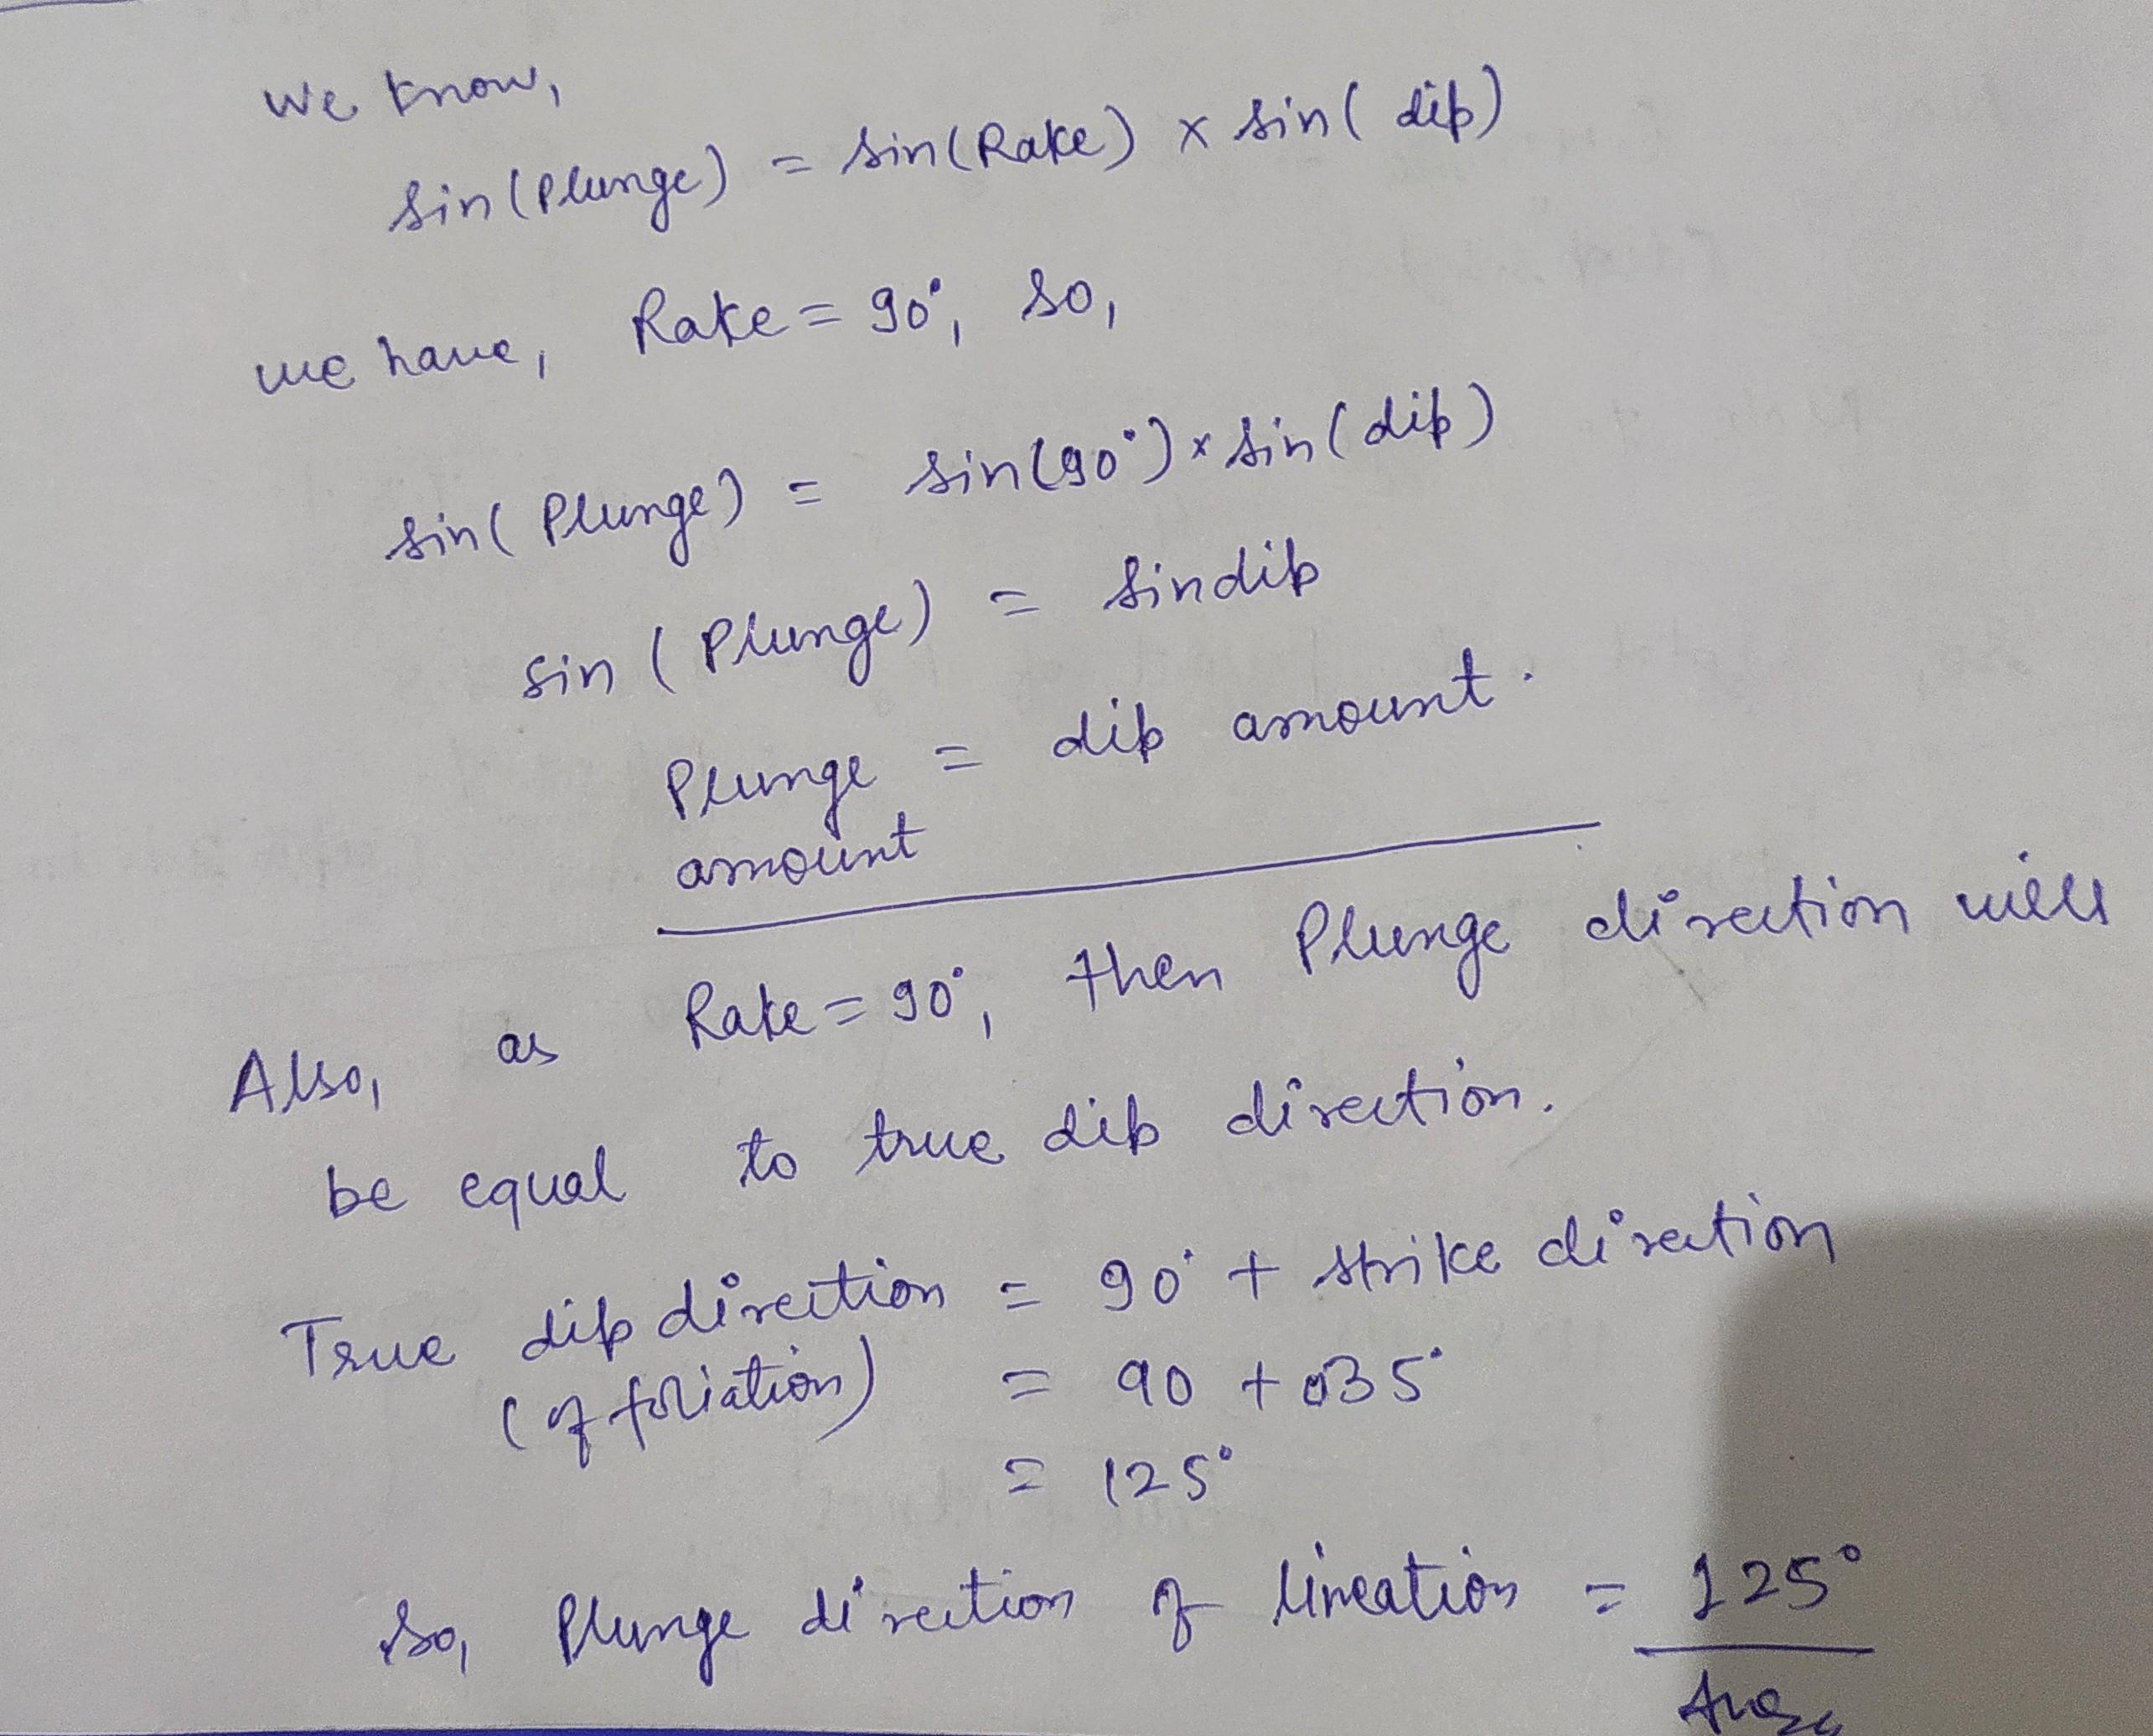 We know,
sin(Plunge) = sin(Rake) × sin(dip)
we have, Rake = 90°, so,
sin(Plunge) = sin(90°) × sin(dip)
sin(Plunge) = sindip
Plunge = dip amount.
amount
Also, as Rake = 90°, then Plunge direction will
be equal to true dip direction.
True dip direction = 90° + strike direction
(of foliation) = 90 + 035°
= 125°
so, Plunge direction of lineation = 125°